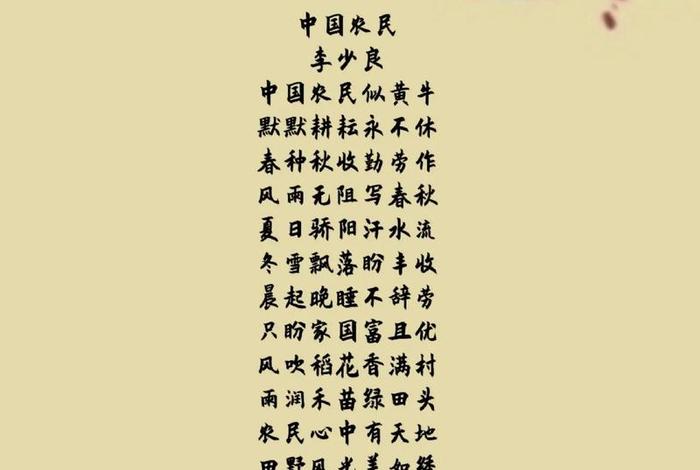 中国农民
李少良
中国农民似黄牛
默默耕耘永不休
春种秋收勤劳作
风雨无阻写春秋
夏日骄阳汗水流
冬雪飘落盼丰收
晨起晚睡不辞劳
只盼家国富且优
风吹稻花香满村
雨润禾苗绿田头
农民心中有天地
田野风光美如绣